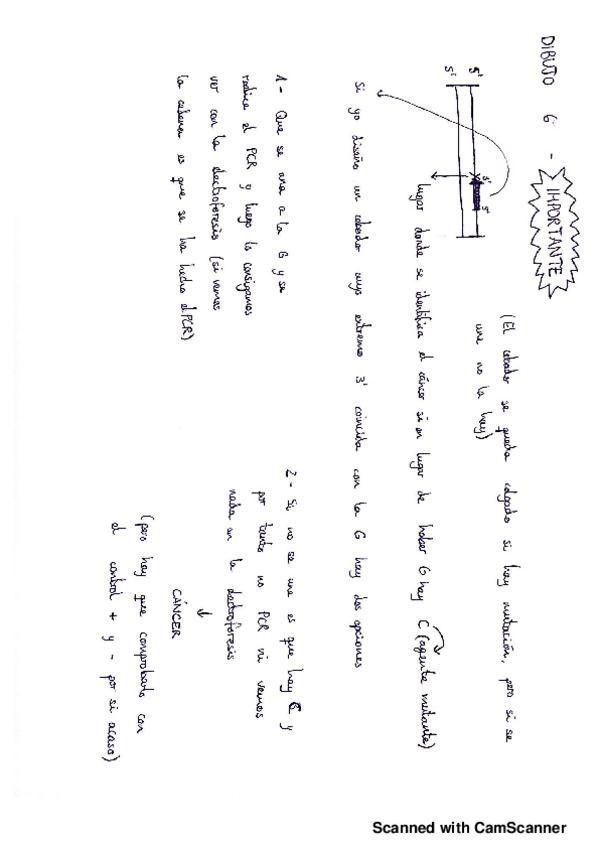 DIBUJO 6 - IMPORTANTE
(El cebador se queda colgado si hay mutación, pero si se
une no la hay)
5' 3' 5'
5'
lugar donde se identifica el cáncer si en lugar de haber G hay C (agente mutante)
Si yo diseño un cebador cuyo extremo 3' coincida con la G hay dos opciones
1- Que se una a la G y se
realice el PCR y luego lo consigamos
ver con la electroforesis (si vemos
la cadena es que se ha hecho el PCR)
2- Si no se une es que hay C y
por tanto no PCR ni vemos
nada en la electroforesis
CÁNCER
(pero hay que comprobarlo con
el control + y - por si acaso)
Scanned with CamScanner